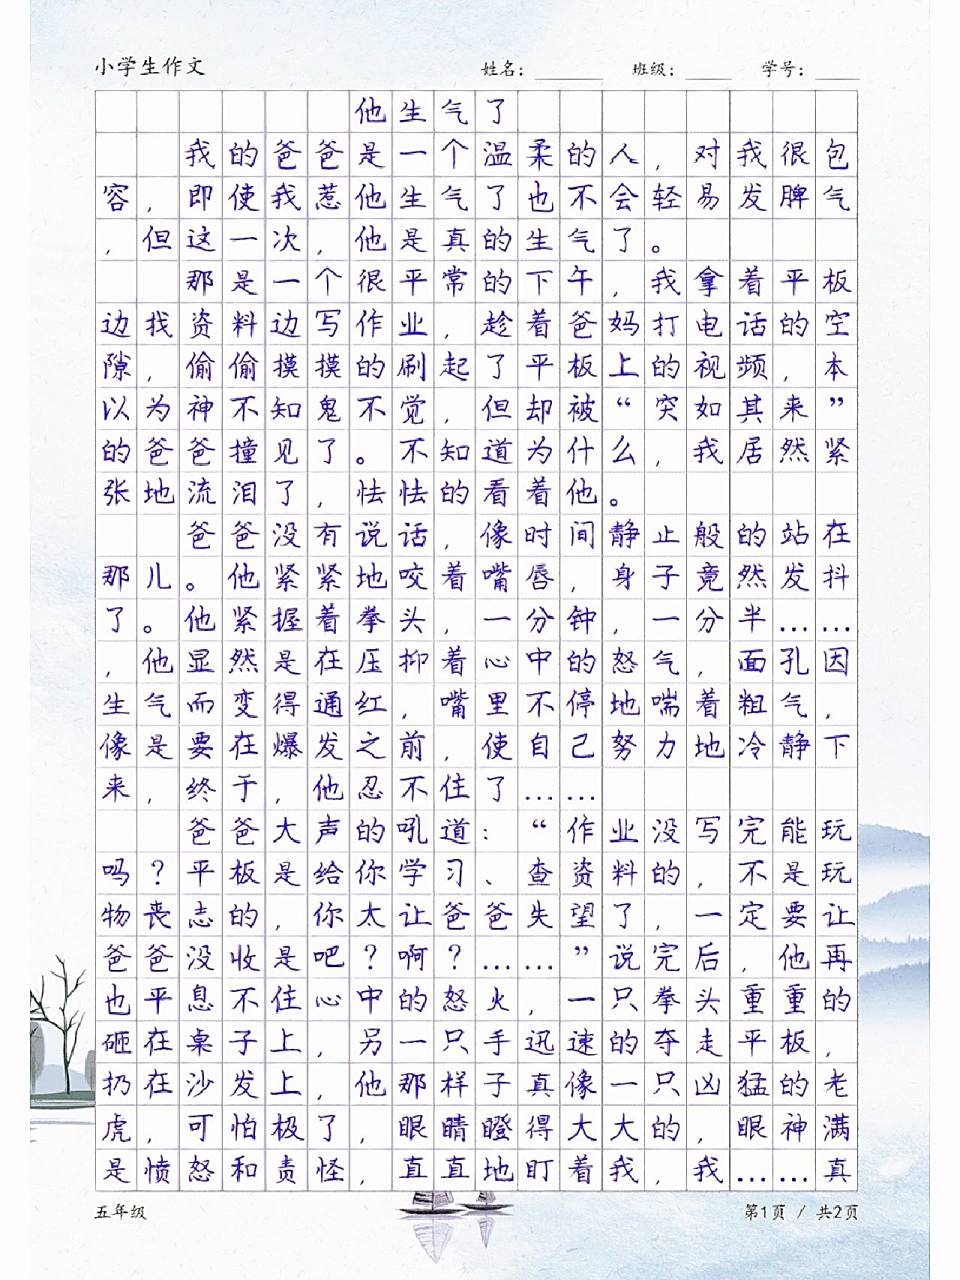 小学生作文 姓名：______ 班级：____ 学号：____
他生气了
我的爸爸是一个温柔的人，对我很包
容，即使我惹他生气了也不会轻易发脾气
，但这一次，他是真的生气了。
那是一个很平常的下午，我拿着平板
边找资料边写作业，趁着爸妈打电话的空
隙，偷偷摸摸的刷起了平板上的视频，本
以为神不知鬼不觉，但却被“突如其来”
的爸爸撞见了。不知道为什么，我居然紧
张地流泪了，怯怯的看着他。
爸爸没有说话，像时间静止般的站在
那儿。他紧紧地咬着嘴唇，身子竟然发抖
了。他紧握着拳头，一分钟，一分半……
，他显然是在压抑着心中的怒气，面孔因
生气而变得通红，嘴里不停地喘着粗气，
像是要在爆发之前，使自己努力地冷静下
来，终于，他忍不住了……
爸爸大声的吼道：“作业没写完能玩
吗？平板是给你学习、查资料的，不是玩
物丧志的，你太让爸爸失望了，一定要让
爸爸没收是吧？啊？……”说完后，他再
也平息不住心中的怒火，一只拳头重重的
砸在桌子上，另一只手迅速的夺走平板，
扔在沙发上，他那样子真像一只凶猛的老
虎，可怕极了，眼睛瞪得大大的，眼神满
是愤怒和责怪，直直地盯着我，我……真
五年级 第1页 / 共2页